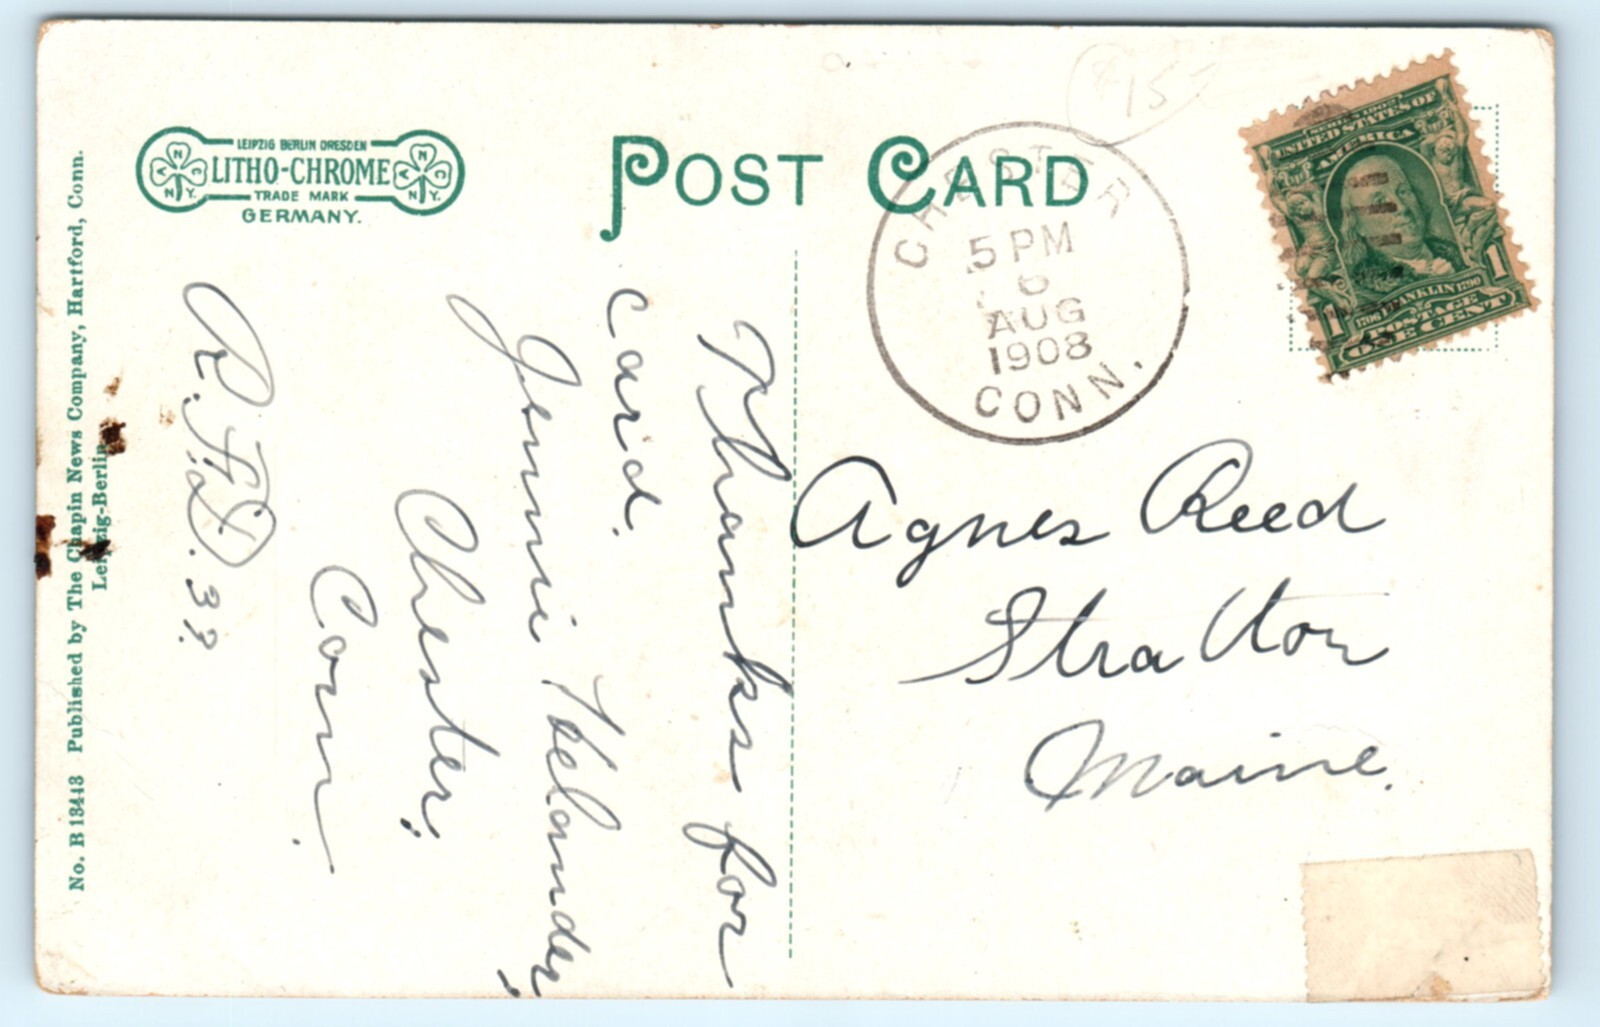 No. B 13443 Published by The Chapin News Company, Hartford, Conn.
Leipzig-Berlin
LEIPZIG BERLIN DRESDEN
LITHO-CHROME
TRADE MARK
GERMANY.
POST CARD
$15
CHESTER
5 PM
6
AUG
1908
CONN.
SERIES 1902
UNITED STATES OF
AMERICA
1706 FRANKLIN 1790
POSTAGE
1 ONE CENT 1
Thanks for
card.
Jennie Helander,
Chester,
Conn.
R.F.D. 3
Agnes Reed
Stratton
Maine.